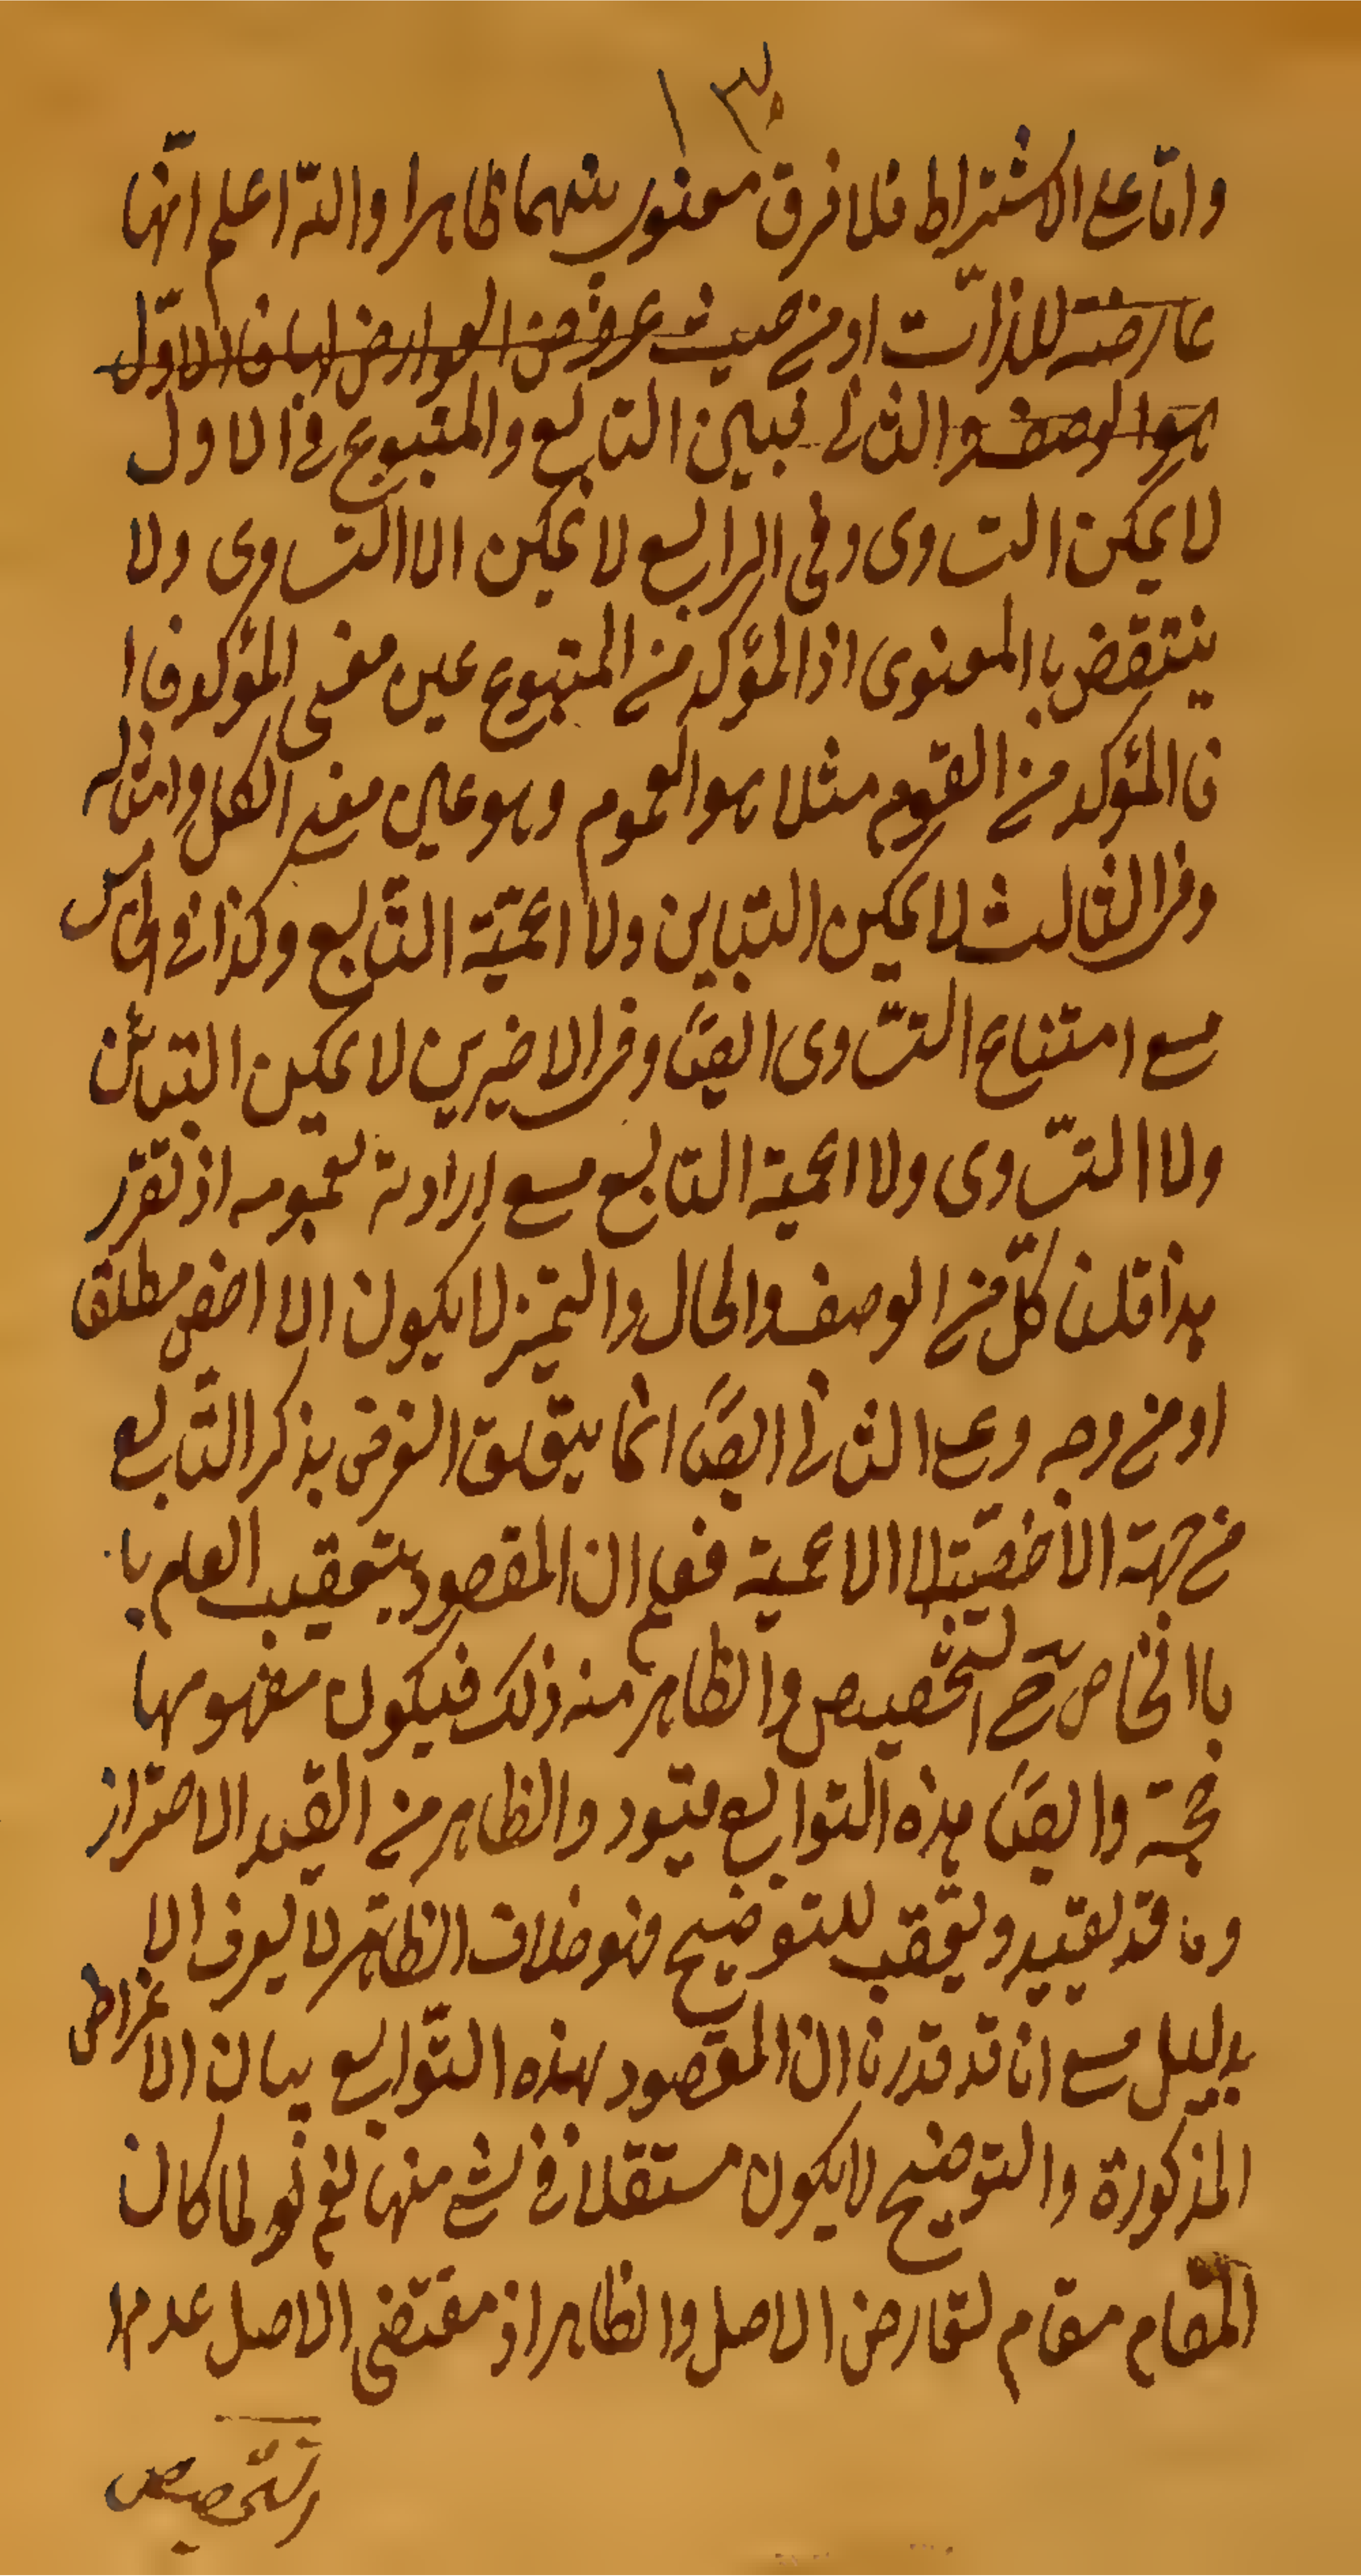 واما على الاشتراط فلا فرق معنوى بينهما ظاهرا والله اعلم انها
عارضة للذات او من حيث عروض العوارض اما فالاول
هو الوصف والثانى فبين التابع والمتبوع فى الاول
لا يمكن التساوى وفى الرابع لا يمكن الا التساوى ولا
ينتقض باالمعنوى اذ المؤكد من المتبوع عين معنى المؤكد فا
فالمؤكد من القوم مثلا هو العموم وهو عين معنى الكل وامثاله
وفى الثالث لا يمكن التباين ولا اعمية التابع وكذا فى الخامس
مع امتناع التساوى ايضا وفى الاخيرين لا يمكن التبائن
ولا التساوى ولا اعمية التابع مع ارادته لعمومه اذ تقرر
هذا قلنا كل من الوصف والحال والتميز لا يكون الا اخص مطلقا
او من وجه وعلى الثانى ايضا انما يتعلق الغرض بذكر التابع
من جهة الأخصية لا الاعمية فعلم ان المقصود بتعقيب العام با
باالخاص التخصيص والظاهر منه ذلك فيكون مفهومها
حجة وايضا هذه التوابع قيود والظاهر من القيد الاحتراز
وما قد يقيد ويعقب للتوضيح فهو خلاف الظاهر لا يعرف الا
بدليل مع انا قد قدرنا ان المقصود بهذه التوابع بيان الاغراض
المذكورة والتوضيح لا يكون مستقلا فى شئ منها نعم لو لما كان
المقام مقام تعارض الاصل والظاهر اذ مقتضى الاصل عدمها
والتخصيص